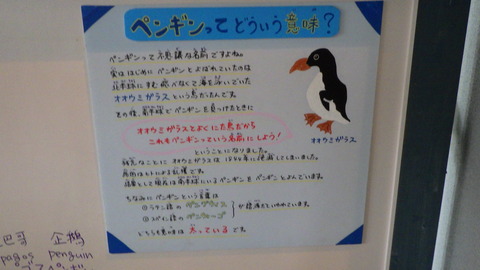 ペンギンってどういう意味?
ペンギンって不思議な名前ですよね。
実ははじめにペンギンとよばれていたのは
北半球にすむ飛べなくて海を泳いでいた
オオウミガラスという鳥だったんです。
その後、南半球でペンギンを見つけたときに
オオウミガラスとよくにた鳥だから
これもペンギンっていう名前にしよう!
ということになりました。
残念なことにオオウミガラスは1844年に絶滅してしまいました。
原因はヒトによる乱獲です。
結果として現在は南半球にいるペンギンをペンギンとよんでいます。
ちなみにペンギンという言葉は
①ラテン語のペングウィス
②スペイン語のペンウィーゴ
が語源だといわれています。
どちらも意味は太っているです。
オオウミガラス
巴哥 企鵝
pagos penguin